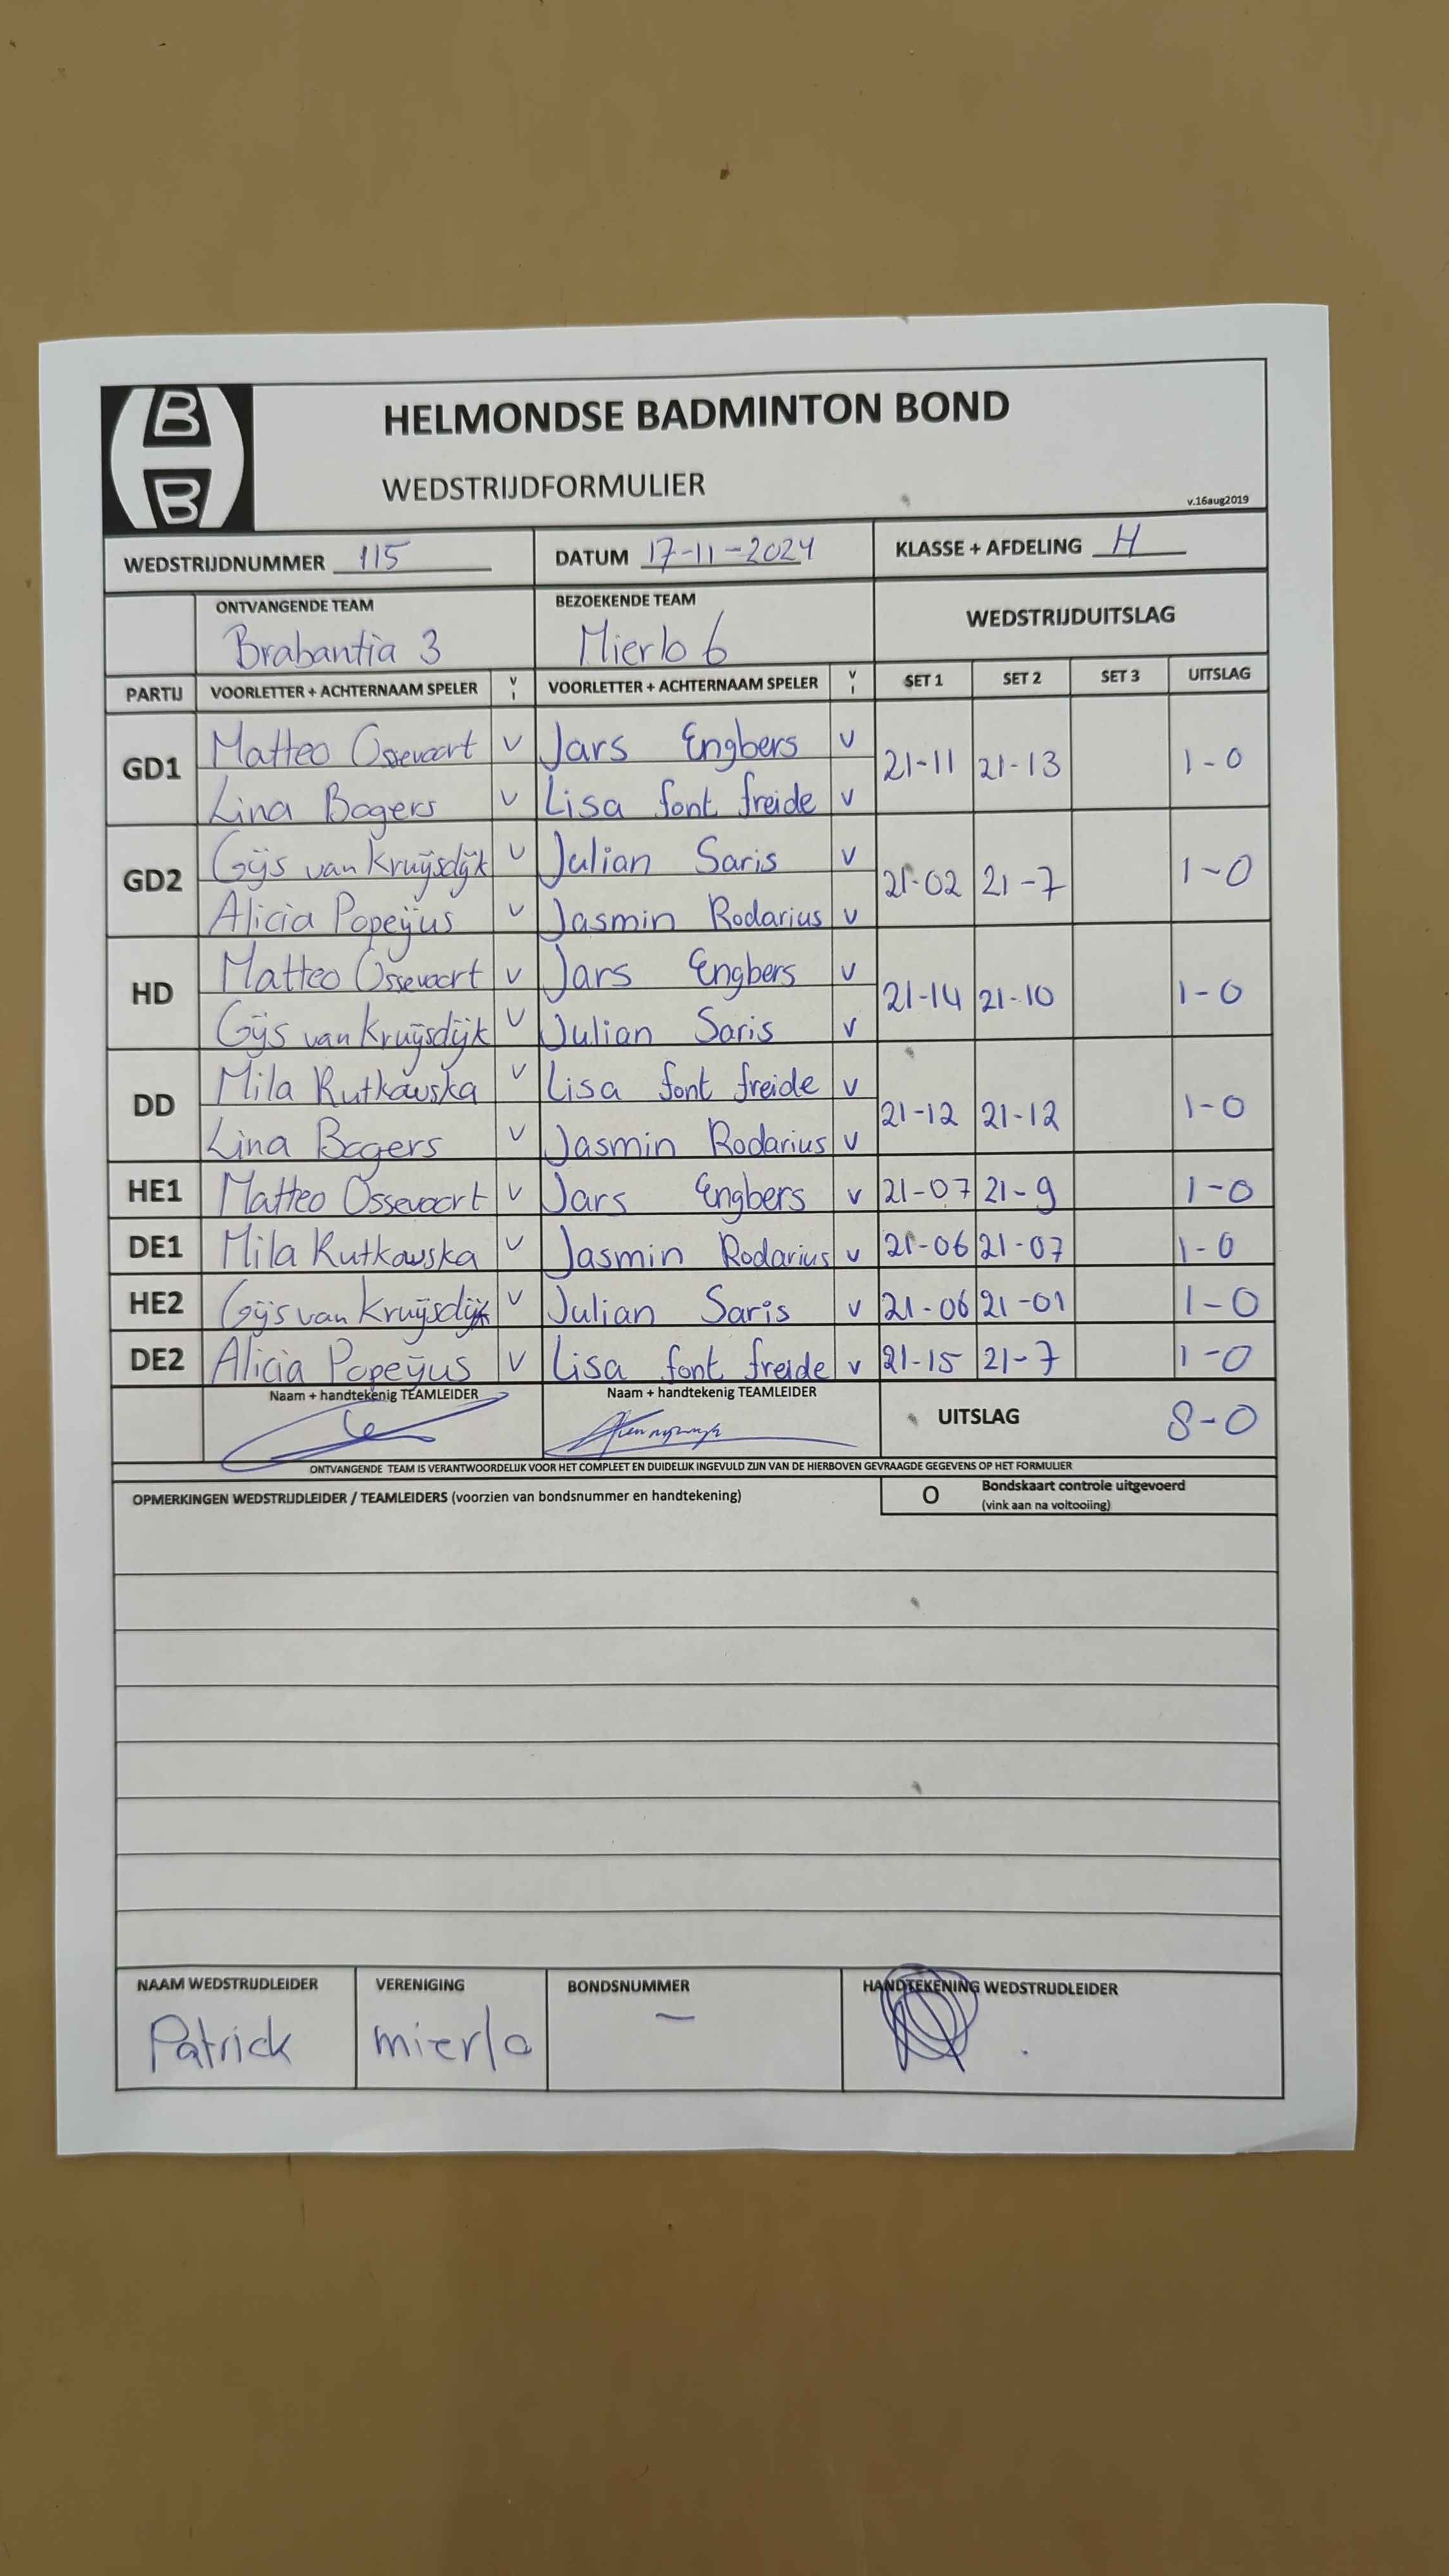 B
B
HELMONDSE BADMINTON BOND
WEDSTRIJDFORMULIER
v.16aug2019
WEDSTRIJDNUMMER 115 DATUM 17-11-2024 KLASSE + AFDELING H
ONTVANGENDE TEAM BEZOEKENDE TEAM WEDSTRIJDUITSLAG
Brabantia 3 Mierlo 6
PARTIJ VOORLETTER + ACHTERNAAM SPELER V I VOORLETTER + ACHTERNAAM SPELER V I SET 1 SET 2 SET 3 UITSLAG
Matteo Ossevoort v Jars Engbers v
GD1 21-11 21-13 1-0
Lina Bogers v Lisa font freide v
Gijs van Kruijsdijk v Julian Saris v
GD2 21-02 21-7 1-0
Alicia Popeijus v Jasmin Rodarius v
Matteo Ossevoort v Jars Engbers v
HD 21-14 21-10 1-0
Gijs van Kruijsdijk v Julian Saris v
Mila Rutkowska v Lisa font freide v
DD 21-12 21-12 1-0
Lina Bogers v Jasmin Rodarius v
HE1 Matteo Ossevoort v Jars Engbers v 21-07 21-9 1-0
DE1 Mila Rutkowska v Jasmin Rodarius v 21-06 21-07 1-0
HE2 Gijs van Kruijsdijk v Julian Saris v 21-06 21-01 1-0
DE2 Alicia Popeijus v Lisa font freide v 21-15 21-7 1-0
Naam + handtekenig TEAMLEIDER Naam + handtekenig TEAMLEIDER
UITSLAG 8-0
ONTVANGENDE TEAM IS VERANTWOORDELIJK VOOR HET COMPLEET EN DUIDELIJK INGEVULD ZIJN VAN DE HIERBOVEN GEVRAAGDE GEGEVENS OP HET FORMULIER
OPMERKINGEN WEDSTRIJDLEIDER / TEAMLEIDERS (voorzien van bondsnummer en handtekening) O Bondskaart controle uitgevoerd
(vink aan na voltooiing)
NAAM WEDSTRIJDLEIDER VERENIGING BONDSNUMMER HANDTEKENING WEDSTRIJDLEIDER
Patrick mierlo -